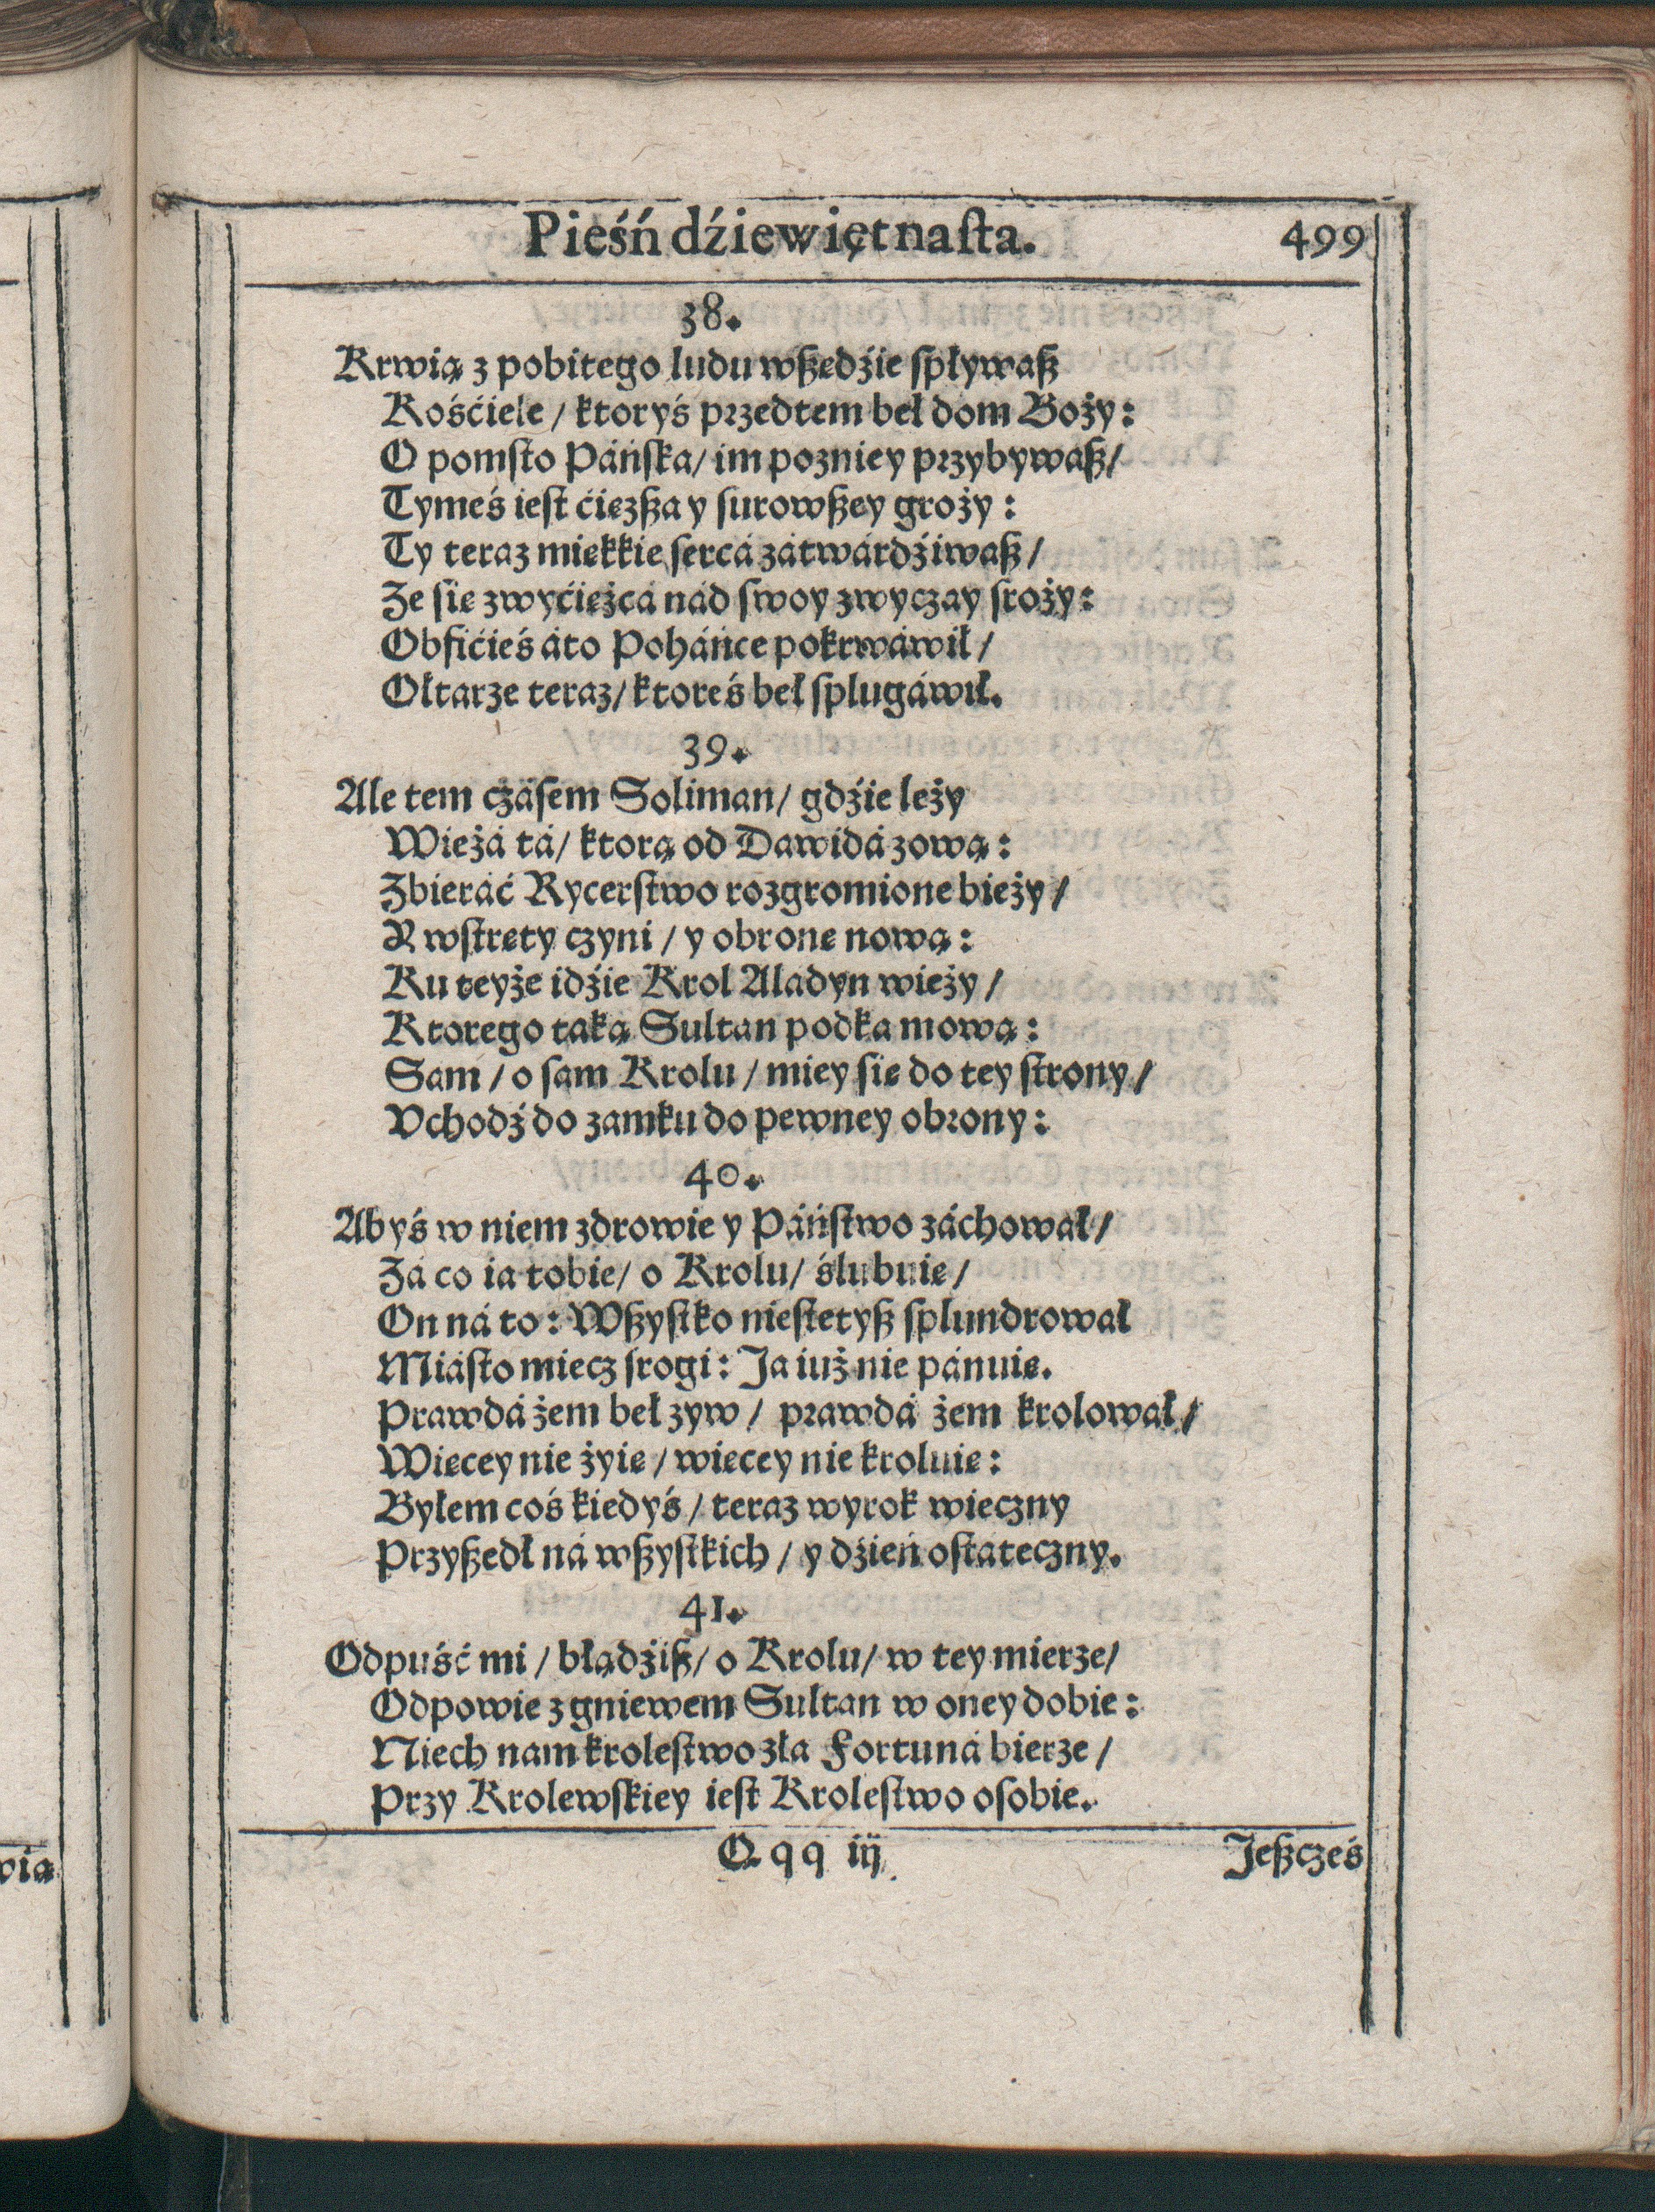 Pieśń dźiewiętnaſta. 499
38.
Krwią z pobitego ludu wßędźie ſpływaß
Kośćiele / ktoryś przedtem beł dom Boży:
O pomſto Páńſka/ im pozniey przybywaß/
Tymeś ieſt ćięzßa y ſurowßey groży:
Ty teraz miękkie ſercá zátwárdźiwaß /
Ze ſię zwyćięźcá nád ſwoy zwyczay ſroży:
Obfićieś áto Poháńce pokrwáwił /
Ołtarze teraz/ ktoreś beł ſplugáwił.
39.
Ale tem czáſem Soliman/ gdźie leży
Wieżá tá/ ktorą od Dawidá zową:
Zbieráć Rycerſtwo rozgromione bieży /
Y wſtręty czyni / y obronę nową:
Ku teyże idźie Krol Aladyn wieży /
Ktorego táką Sultan podka mową:
Sam / o ſam Krolu / miey ſię do tey ſtrony /
Vchodź do zamku do pewney obrony:
40.
Abyś w niem zdrowie y Páńſtwo záchował /
Zá co ia tobie/ o Krolu/ ślubuię /
On ná to: Wßyſtko nieſtetyß ſplundrował
Miáſto miecz ſrogi: Ja iuż nie pánuię.
Prawdá żem beł zyw / prawdá żem krolował /
Więcey nie żyię / więcey nie kroluię:
Byłem coś kiedyś / teraz wyrok wieczny
Przyßedł ná wßyſtkich / y dźień oſtateczny.
41.
Odpuść mi / błądźiß/ o Krolu/ w tey mierze/
Odpowie z gniewem Sultan w oney dobie:
Niech nam kroleſtwo zła Fortuná bierze /
Przy Krolewſkiey ieſt Kroleſtwo oſobie.
Qqq iij Jeßcześ